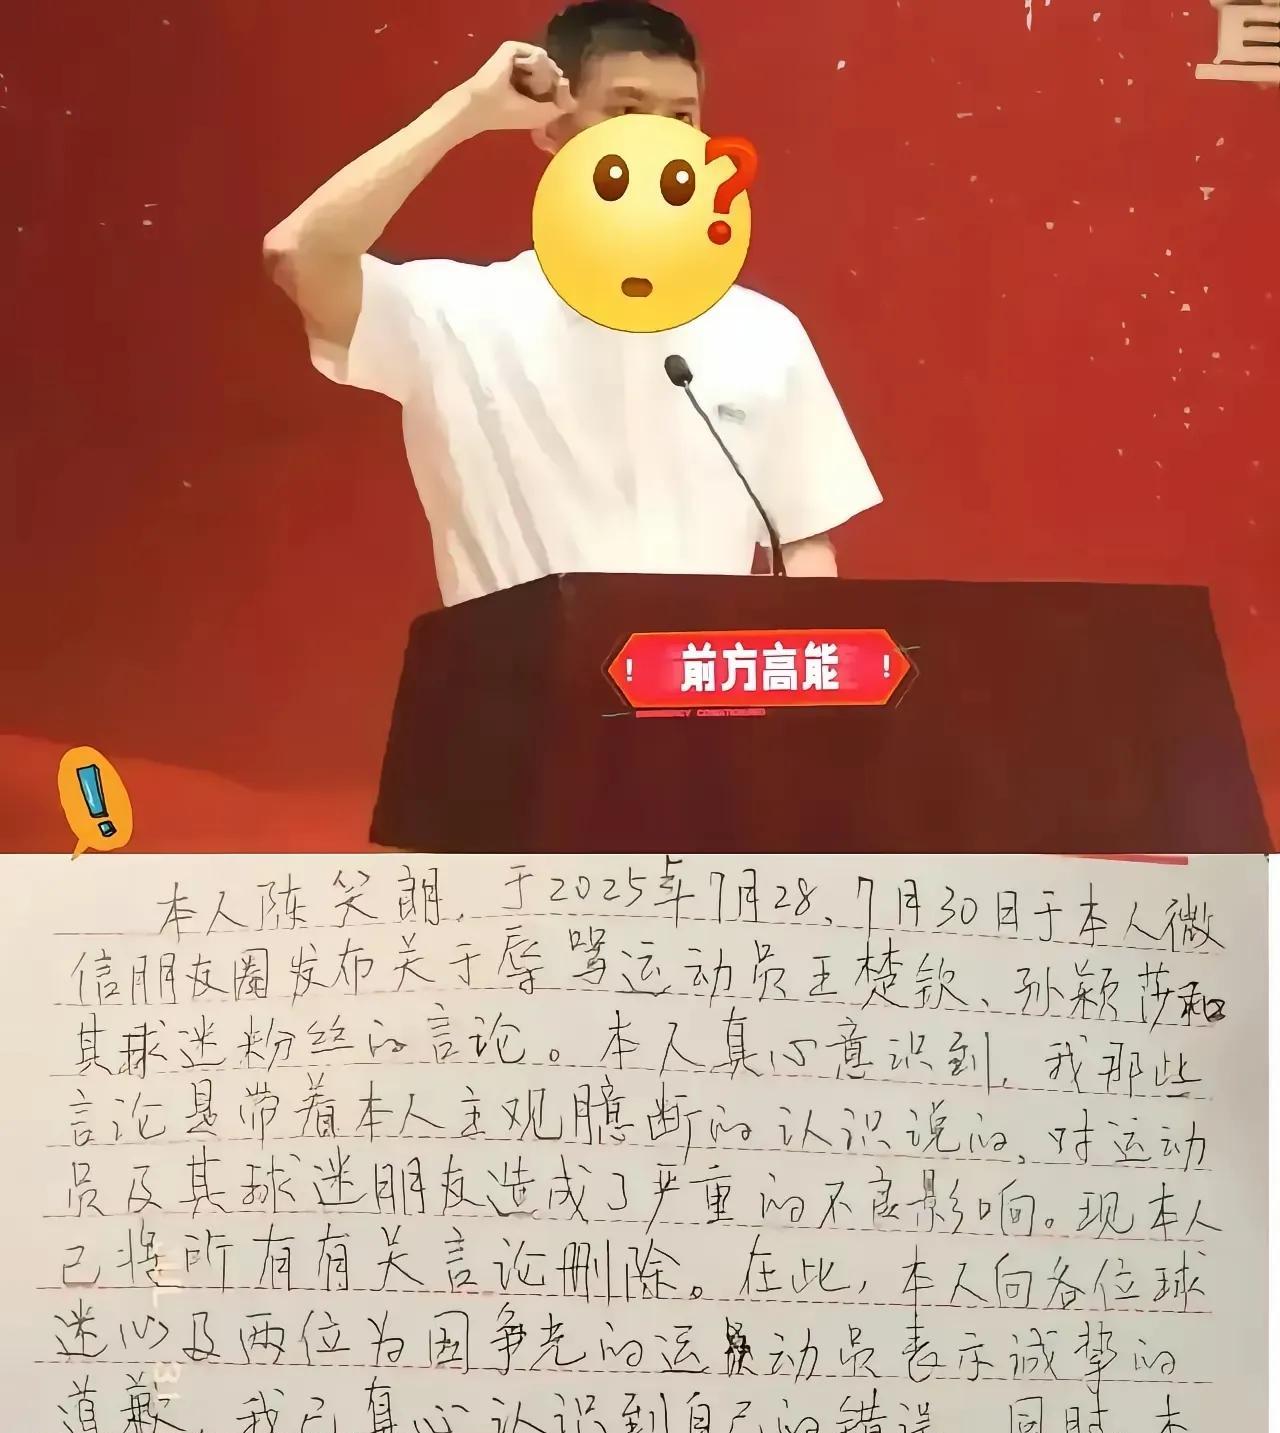 宣
前方高能
本人陈笑朗，于2025年7月28、7月30日于本人微
信朋友圈发布关于辱骂运动员王楚钦、孙颖莎和
其球迷粉丝的言论。本人真心意识到，我那些
言论是带着本人主观臆断的认识说的，对运动
员及其球迷朋友造成了严重的不良影响。现本人
已将所有有关言论删除。在此，本人向各位球
迷以及两位为国争光的运动员表示诚挚的
道歉，我已真心认识到自己的错误。同时，本